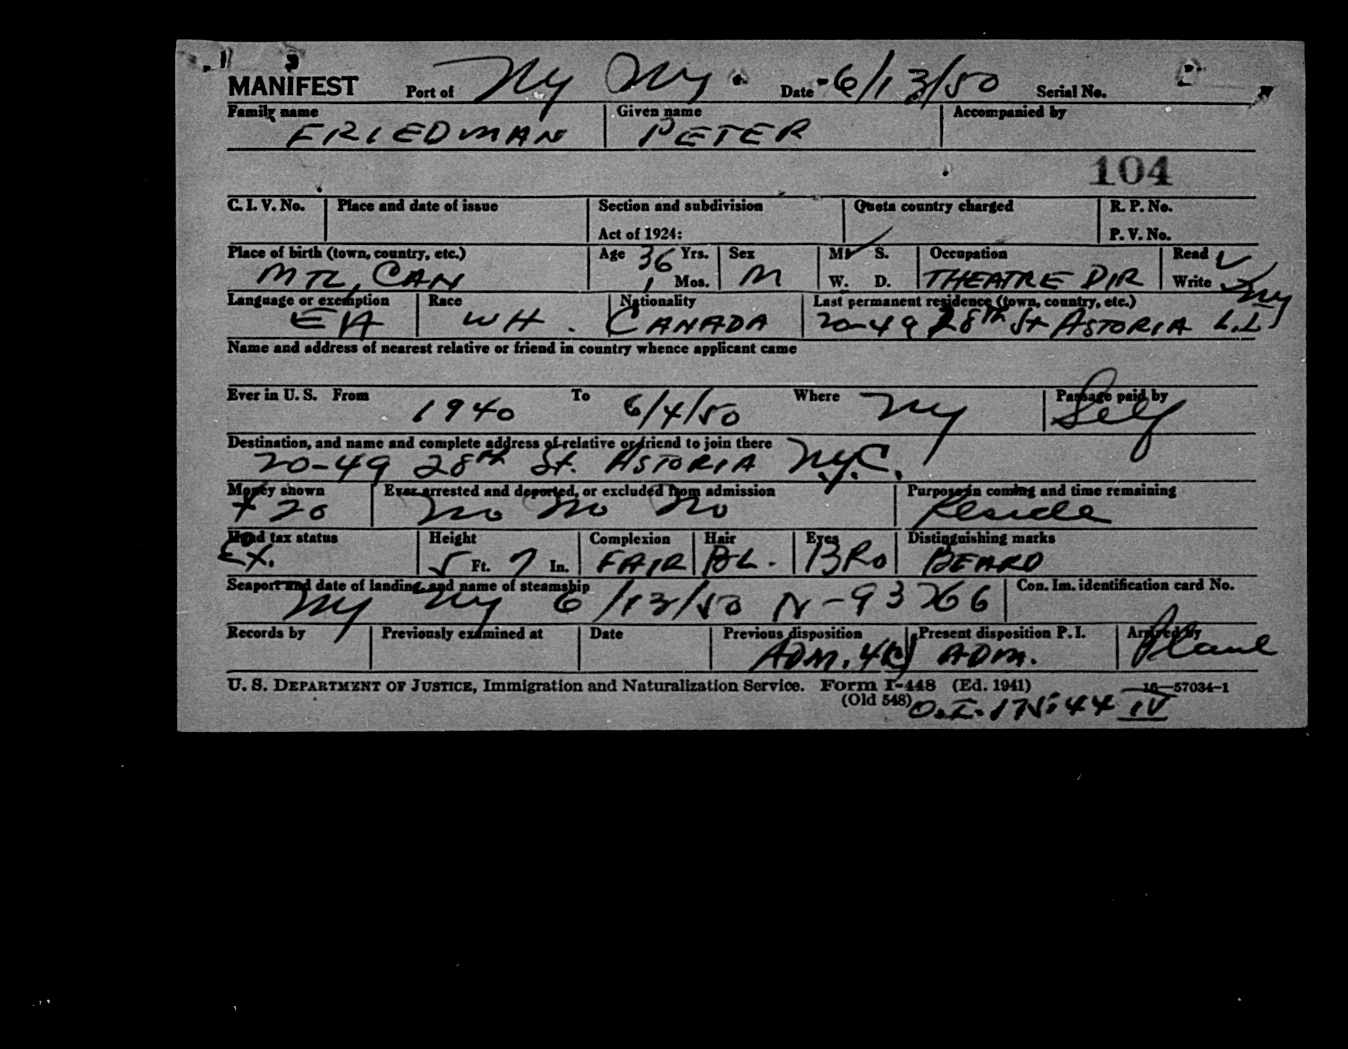 MANIFEST Port of Ny Ny. Date 6/13/50 Serial No.
Family name Given name Accompanied by
FRIEDMAN PETER
104
C. I. V. No. Place and date of issue Section and subdivision Quota country charged R. P. No.
Act of 1924: P. V. No.
Place of birth (town, country, etc.) Age 36 Yrs. Sex M. S. Occupation Read ✓
MTL, CAN Mos. M W. D. THEATRE DIR Write ✓ Eng
Language or exemption Race Nationality Last permanent residence (town, country, etc.)
WH. CANADA 20-49 28th St ASTORIA L.I.
Name and address of nearest relative or friend in country whence applicant came
Ever in U. S. From To Where Passage paid by
1940 6/4/50 Ny Self
Destination, and name and complete address of relative or friend to join there
20-49 28th St. ASTORIA N.Y.C.
Money shown Ever arrested and deported, or excluded from admission Purpose in coming and time remaining
+20 No No No Reside
Head tax status Height Complexion Hair Eyes Distinguishing marks
Ex. 5 Ft. 7 In. FAIR BL. BRO BEARD
Seaport and date of landing, and name of steamship Con. Im. identification card No.
Ny Ny 6/13/50 N-93766
Records by Previously examined at Date Previous disposition Present disposition P. I. Arrived by
ADM. ADM. Plane
U. S. DEPARTMENT OF JUSTICE, Immigration and Naturalization Service. Form I-448 (Ed. 1941) 16—57034-1
(Old 548) O.I.